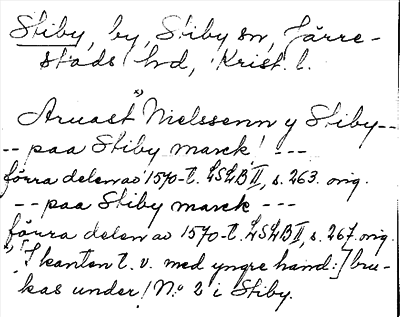 Stiby, by, Stiby sn, Järre-
stads hd, Krist. l.
"Aruast Nielssenn y Stiby --
-- paa Stiby marck! ---
förra delen av 1570-t. LSLB II, s. 263. orig.
-- paa Stiby marck ---
förra delen av 1570-t. LSLB II, s. 267. orig.
"[I kanten t. v. med yngre hand:] bru-
kas under N:o 2 i Stiby.